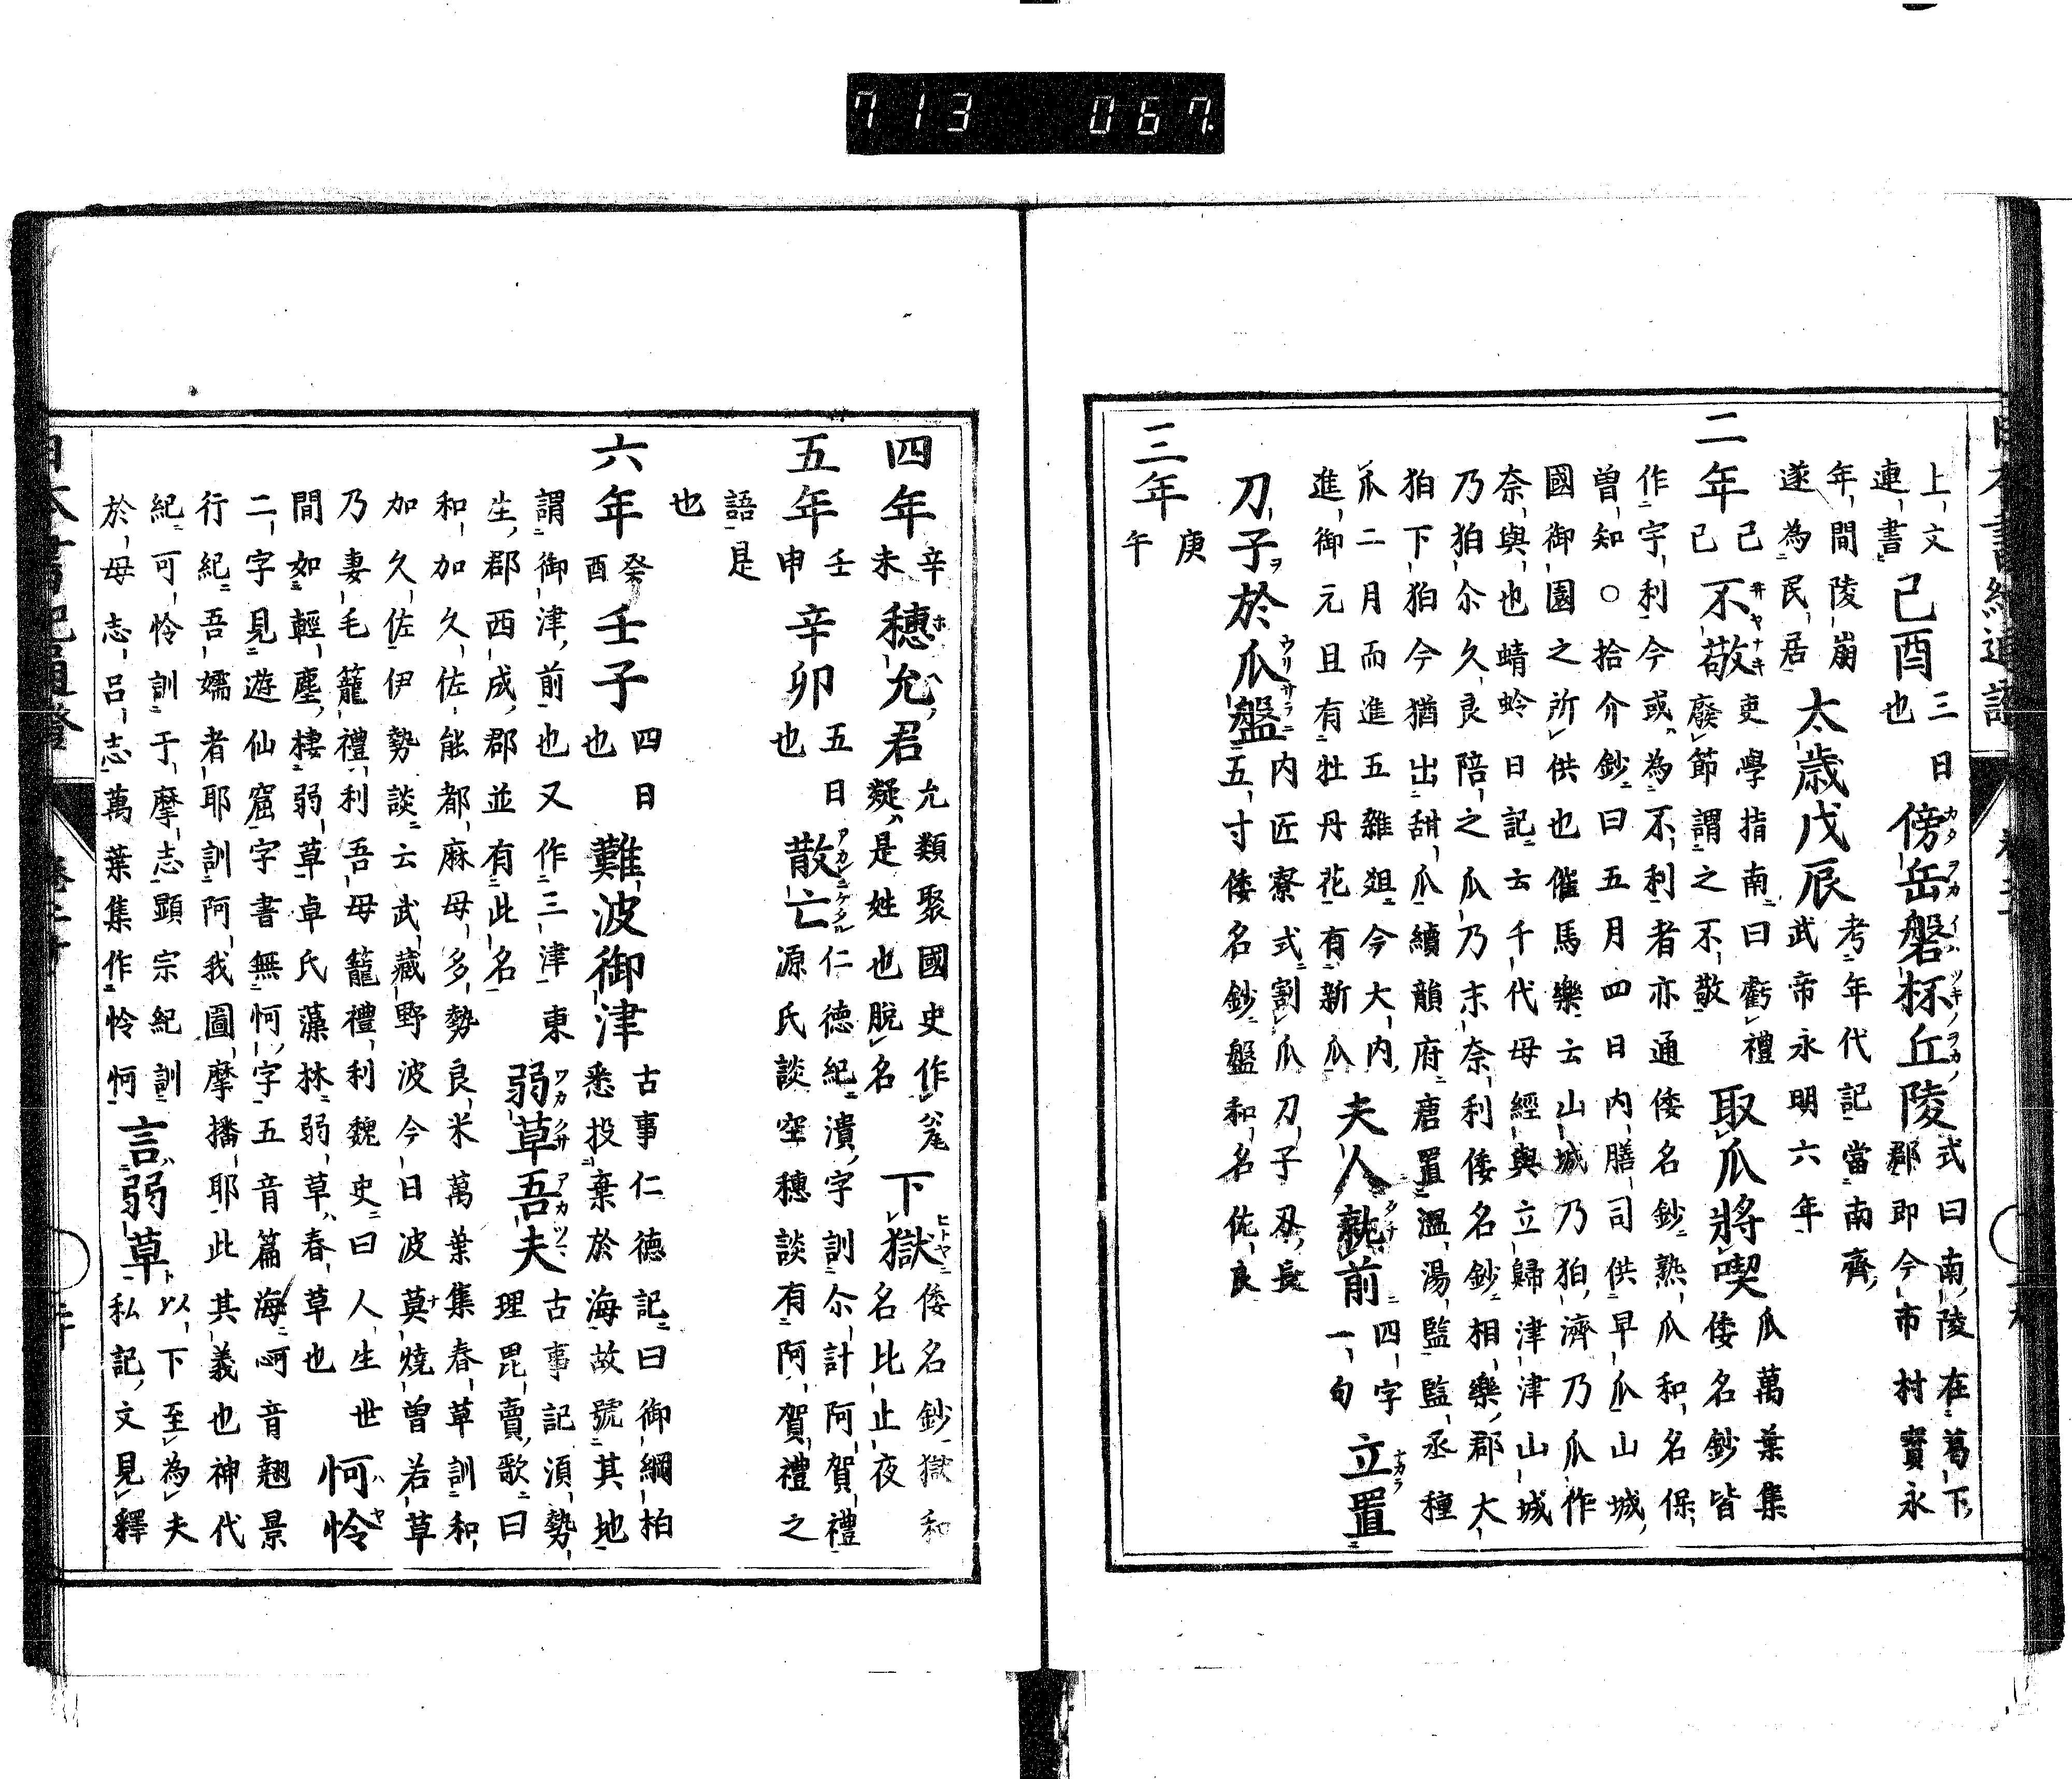 713 067.
上文
連書
己酉
三日
也
傍岳磐杯丘陵
式曰南陵在葛下
郡即今市村寶永
年間陵崩
遂為民居
太歳戊辰
考年代記當南齊
武帝永明六年
二年
己
己
不敬
吏學指南曰虧禮
廢節謂之不敬
取瓜將喫
瓜萬葉集
倭名鈔皆
作宇利今或為不利者亦通倭名鈔熟瓜和名保
曽知○拾介鈔曰五月四日内膳司供早瓜山城
國御園之所供也催馬樂云山城乃狛濟乃瓜作
奈與也蜻蛉日記云千代母經與立歸津津山城
乃狛尒久良陪之瓜乃末奈利倭名鈔相樂郡大
狛下狛今猶出甜瓜續韻府唐置溫湯監監丞種
瓜二月而進五雜爼今大内
進御元且有牡丹花有新瓜
夫人執前
四字
一句
立置
刀子於瓜盤
内匠寮式割瓜刀子刄長
五寸倭名鈔盤和名佐良
三年
庚
午
四年
辛
未
穗允君
允類聚國史作瓮
疑是姓也脱名
下獄
倭名鈔獄和
名比止夜
五年
壬
申
辛卯
五日
也
散亡
仁徳紀潰字訓尒計阿賀禮
源氏談空穗談有阿賀禮之
語是
也
六年
癸
酉
壬子
四日
也
難波御津
古事仁徳記曰御綱柏
悉投棄於海故號其地
謂御津前也又作三津東
生郡西成郡並有此名
弱草吾夫
古事記湏勢
理毘賣歌曰
和加久佐能都麻母多勢良米萬葉集春草訓和
加久佐伊勢談云武藏野波今日波莫燒曽若草
乃妻毛籠禮利吾母籠禮利魏史曰人生世
間如輕塵棲弱草卓氏藻林弱草春草也
怜
二字見遊仙窟字書無怜字五音篇海怜音翹景
行紀吾嬬者耶訓阿我圖摩播耶此其義也神代
紀可怜訓于摩志顕宗紀訓
於母志呂志萬葉集作怜怜
言弱草
以下至為夫
私記文見釋